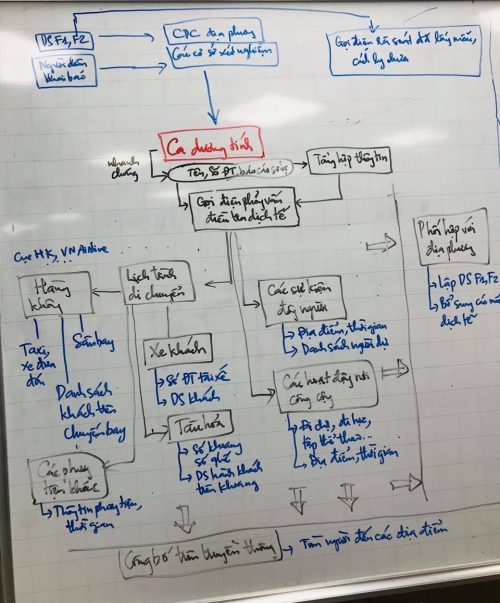 DS F1, F2
Người dân
khai báo
CDC địa phương
Các cơ sở xét nghiệm
Gọi điện rà soát đã lấy mẫu,
cách ly chưa
Ca dương tính
nhanh
chóng
Tên, Số ĐT báo cáo
Tổng hợp thông tin
Gọi điện phỏng vấn
điều tra dịch tễ
Phối hợp với
địa phương
Lập DS F1, F2
Bổ sung
dịch tễ
Cục HK, VN Airline
Hàng
không
Taxi,
xe đưa
đón
Sân bay
Danh sách
khách trên
chuyến bay
Lịch trình
di chuyển
Xe khách
Số ĐT tài xế
DS khách
Tàu hỏa
Số khoang
số ghế
DS hành khách
trên khoang
Các phương
tiện khác
Thông tin phương tiện,
thời gian
Các sự kiện
đông người
Địa điểm, thời gian
Danh sách người dự
Các hoạt động nơi
công cộng
Đi chợ, đi học,
tập thể thao...
Địa điểm, thời gian
Công bố trên truyền thông
Tìm người đến các địa điểm